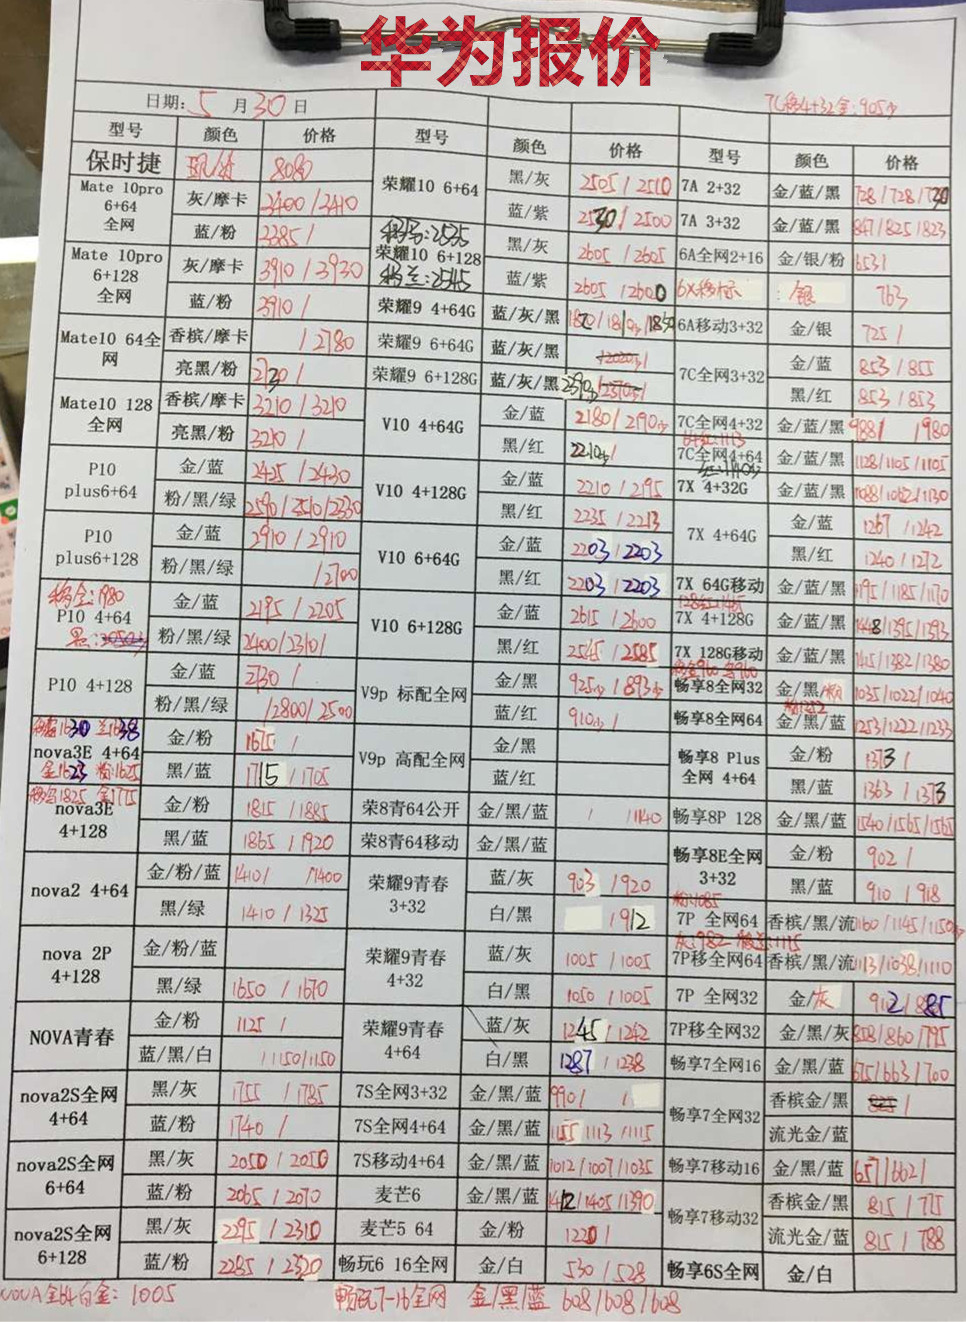 华为报价
日期: 5 月 30 日
7C移4+32金:905
型号 颜色 价格 型号 颜色 价格 型号 颜色 价格
保时捷 8080
Mate 10pro 6+64 全网 灰/摩卡 2400/2410
蓝/粉 2385/
Mate 10pro 6+128 全网 灰/摩卡 3910/3930
蓝/粉 3910/
Mate10 64全网 香槟/摩卡 /2780
亮黑/粉
Mate10 128全网 香槟/摩卡 3210/3210
亮黑/粉 3210/
P10 plus6+64 金/蓝 2425/2430
粉/黑/绿 2590/2510/2330
P10 plus6+128 金/蓝 2910/2910
粉/黑/绿 /2700
移金:1980
P10 4+64 金/蓝 2195/2205
粉/黑/绿 2400/2310/
P10 4+128 金/蓝 2130/
粉/黑/绿 /2800/2500
nova3E 4+64 金/粉 1675/
黑/蓝 1715/1705
金1623 粉:1625
nova3E 4+128 金/粉 1815/1885
黑/蓝 1865/1920
nova2 4+64 金/粉/蓝 1410/ /1400
黑/绿 1410/1325
nova 2P 4+128 金/粉/蓝
黑/绿 1650/1670
NOVA青春 金/粉 1125/
蓝/黑/白 /1150/1150
nova2S全网 4+64 黑/灰 1755/1785
蓝/粉 1740/
nova2S全网 6+64 黑/灰 2050/2050
蓝/粉 2065/2070
nova2S全网 6+128 黑/灰 2295/2310
蓝/粉 2285/2320
荣耀10 6+64 黑/灰 2505/2510
蓝/紫 2530/2500
荣耀10 6+128 黑/灰 2605/2605
蓝/紫 2605/2600
荣耀9 4+64G 蓝/灰/黑
荣耀9 6+64G 蓝/灰/黑
荣耀9 6+128G 蓝/灰/黑
V10 4+64G 金/蓝 2180/2190
黑/红 2210/
V10 4+128G 金/蓝 2210/2195
黑/红 2235/2213
V10 6+64G 金/蓝 2203/2203
黑/红 2203/2203
V10 6+128G 金/蓝 2615/2600
黑/红 2545/2585
V9p 标配全网 金/黑 925/893
蓝/红 910/
V9p 高配全网 金/黑
蓝/红
荣8青64公开 金/黑/蓝 / /1140
荣8青64移动 金/黑/蓝
荣耀9青春 3+32 蓝/灰 903/920
白/黑 /912
荣耀9青春 4+32 蓝/灰 1005/1005
白/黑 1050/1005
荣耀9青春 4+64 蓝/灰 1245/1242
白/黑 1287/1238
7S全网3+32 金/黑/蓝 990/ /
7S全网4+64 金/黑/蓝 1155/1113/1115
7S移动4+64 金/黑/蓝 1012/1007/1035
麦芒6 金/黑/蓝 1412/1405/1390
麦芒5 64 金/粉 1220/
畅玩6 16全网 金/白 530/528
7A 2+32 金/蓝/黑 728/728/730
7A 3+32 金/蓝/黑 847/825/823
6A全网2+16 金/银/粉 653/
6X移标 银 763
6A移动3+32 金/银 725/
7C全网3+32 金/蓝 853/855
黑/红 853/853
7C全网4+32 金/蓝/黑 988/ /980
7C全网4+64 金/蓝/黑 1128/1105/1105
7X 4+32G 金/蓝/黑 1088/1062/1130
7X 4+64G 金/蓝 1267/1242
黑/红 1240/1272
7X 64G移动 金/蓝/黑 1195/1185/1170
7X 4+128G 金/蓝/黑 1448/1395/1393
7X 128G移动 金/蓝/黑 1415/1382/1380
畅享8全网32 金/黑/粉 1035/1022/1040
畅享8全网64 金/黑/蓝 1253/1222/1233
畅享8 Plus 全网 4+64 金/粉 1373/
黑/蓝 1363/1373
畅享8P 128 金/黑/蓝 1540/1565/1565
畅享8E全网 3+32 金/粉 902/
黑/蓝 910/918
粉:1085
7P 全网64 香槟/黑/流 1160/1145/1150
7P移全网64 香槟/黑/流 1113/1038/1110
7P 全网32 金/灰 912/885
7P移全网32 金/黑/灰 858/860/795
畅享7全网16 金/黑/蓝 675/663/700
畅享7全网32 香槟金/黑
流光金/蓝
畅享7移动16 金/黑/蓝 657/602/
畅享7移动32 香槟金/黑 815/775
流光金/蓝 815/788
畅享6S全网 金/白
NOVA金64白金: 1005
畅玩7-16全网 金/黑/蓝 608/608/608